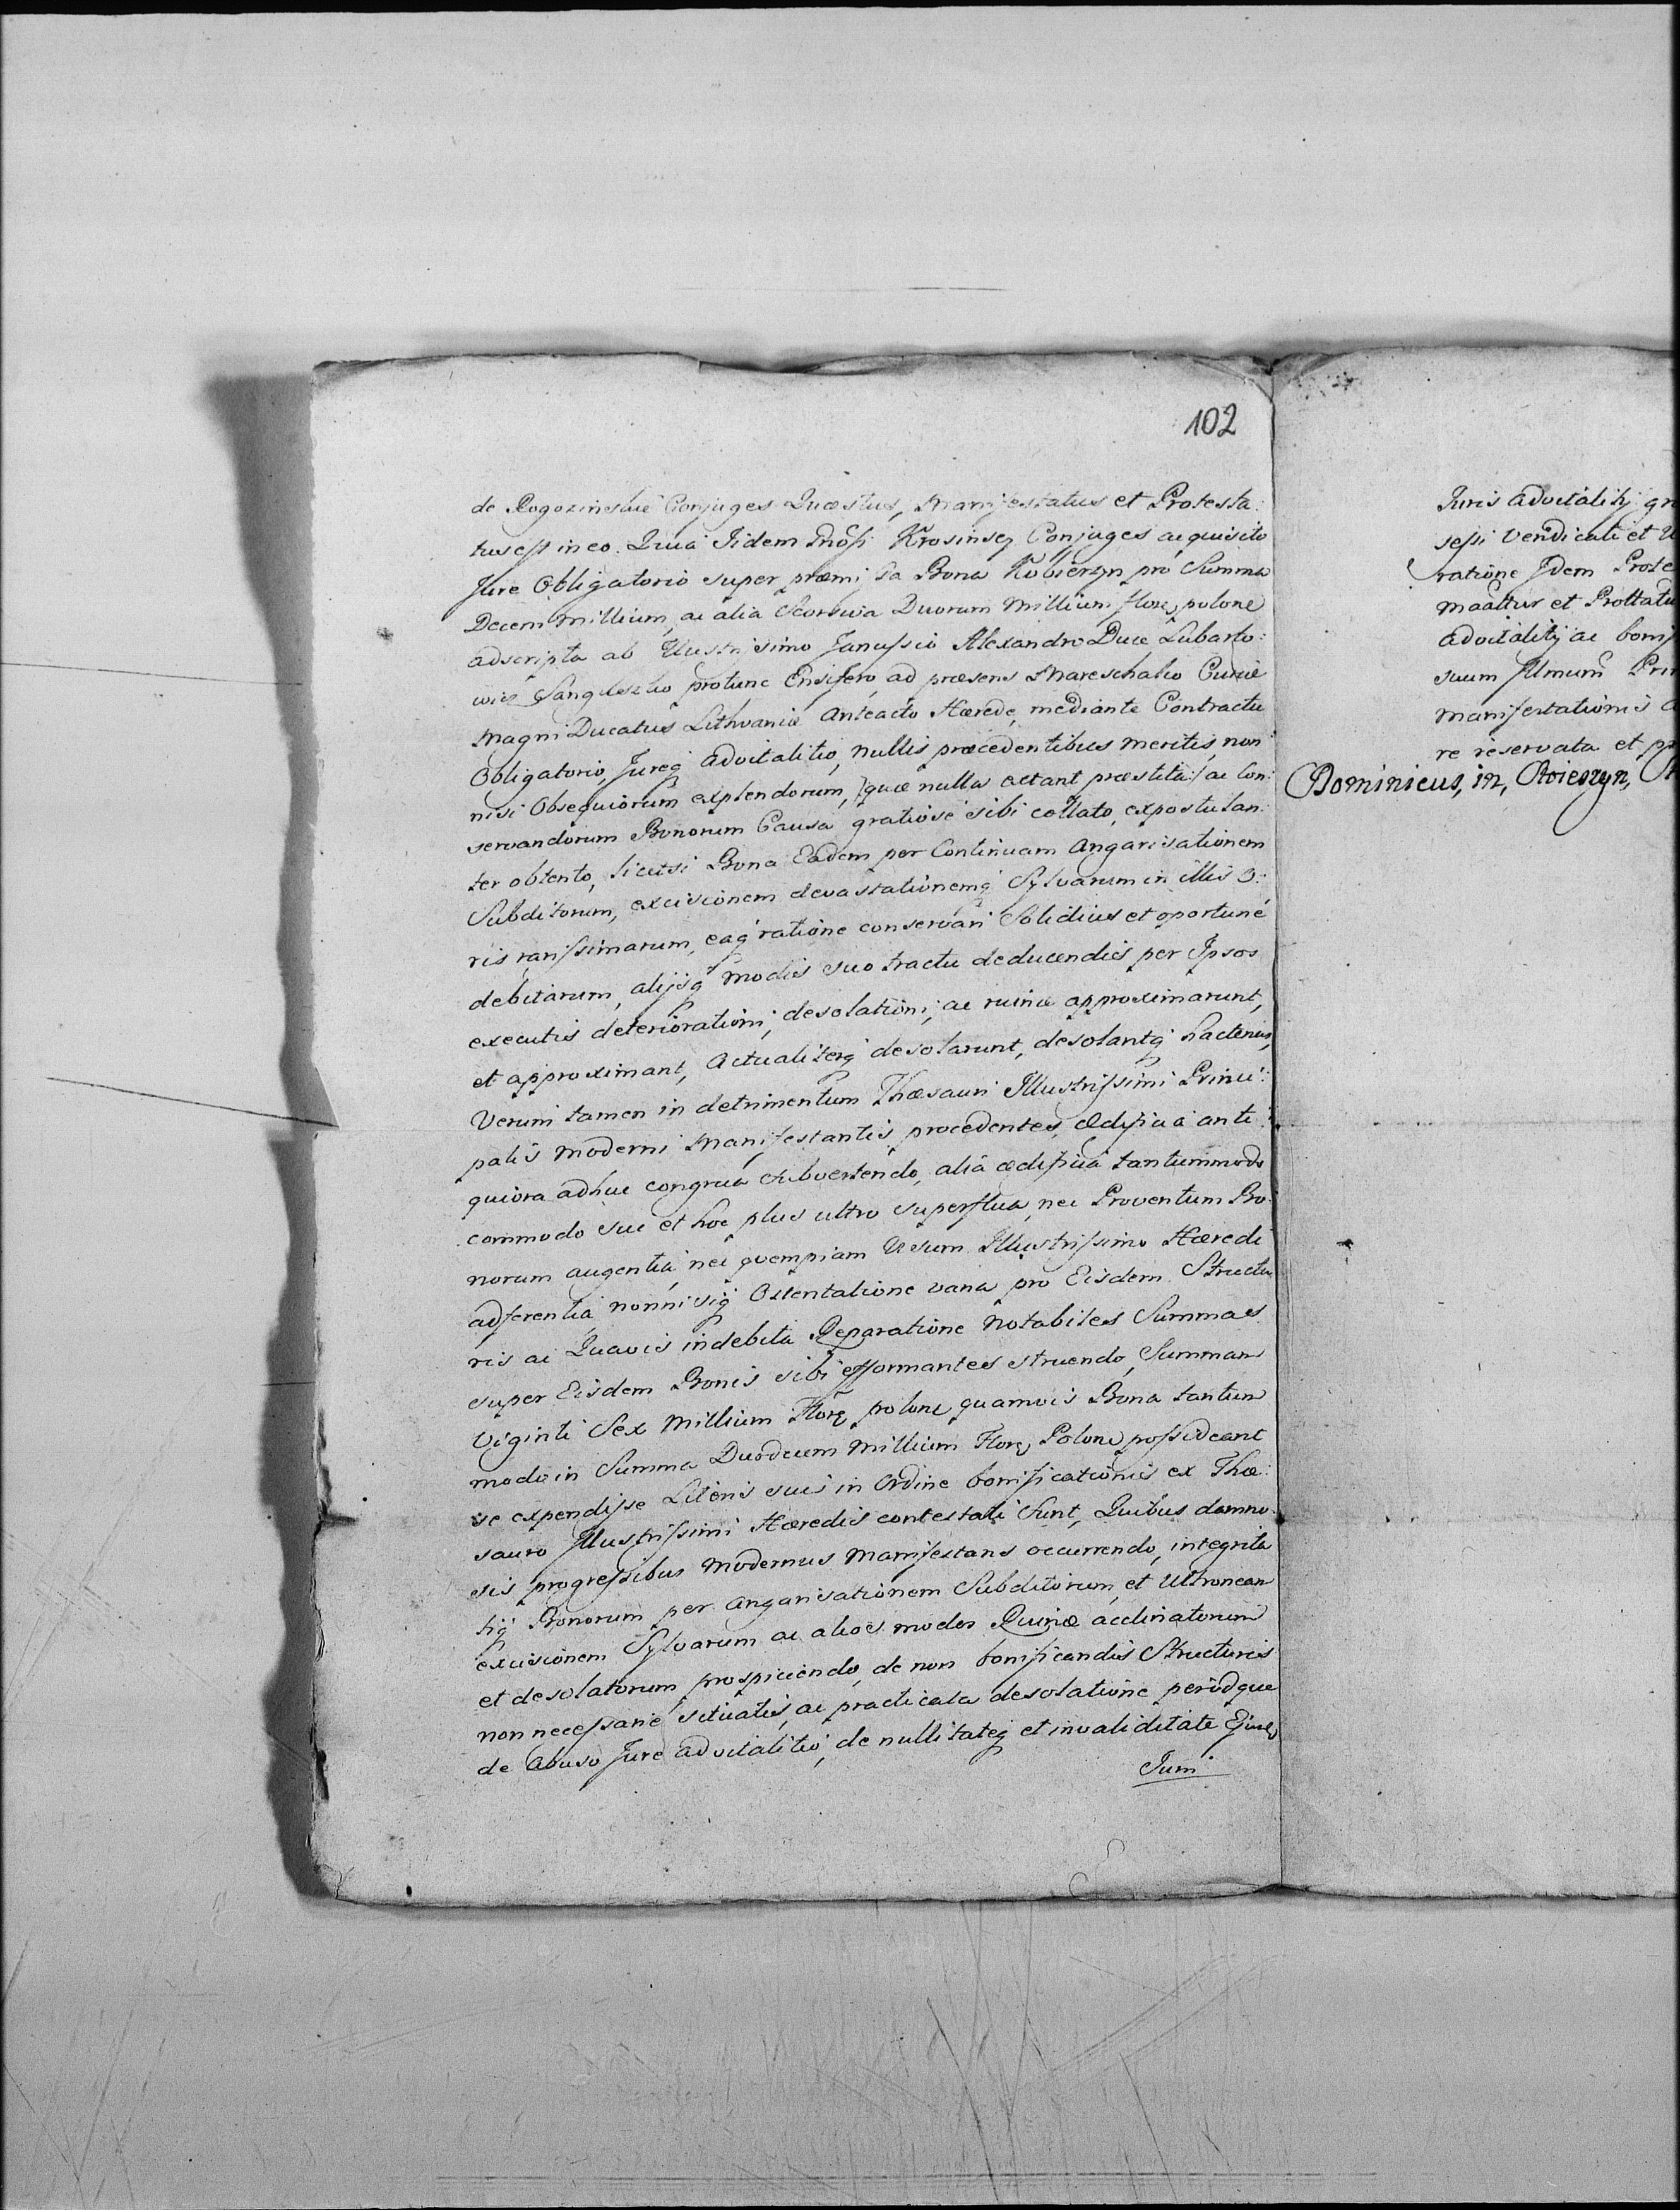 102
de Rogozinskie Conjuges Quæstus, Manifestatus et Protesta:
tus est in eo. Quia Iidem Gnosi Krosinscy Conjuges acquisito
Jure Obligatorio super præmissa Bona Kobierzyn pro Summa
Decem Millium, ac alia Seorsiva Duorum Millium flor, polone
adscripta ab Illustrissimo Janussio Alexandro Duce Lubarto:
wicz Sanguszko protunc Ensifero, ad præsens Mareschalco Curiæ
Magni Ducatus Lithvaniæ Anteacto Hærede, mediante Contractu
Obligatorio Jureq advitalitio, nullis præcedentibus meritis, non
nisi Obsequiorum explendorum, /:quæ nulla extant præstita:/ ac Con:
servandorum Bonorum Causa gratiose sibi collato, expostulan:
ter obtento, sicuti Bona Eadem per Continuam Angarisationem
Subditorum, excisionem devastationemq Sylvarum in illis O:
ris rarissimarum, eaq ratione conservari Solidius et oportuné
debitarum, alijsq modis suo tractu deducendis per Ipsos
executis deteriorationi, desolationi, ac ruinæ approximarunt,
et approximant, Actualiterq desolarunt, desolantq hactenus,
Verum tamen in detrimentum Thæsauri Illustrissimi Princi:
palis moderni Manifestantis procedentes, Ædificia anti:
quiora adhuc congrua subvertendo, alia ædificia tantummodo
commodo suo et hoc plus ultro superflua, nec Proventum Bo:
norum augentia, nec quempiam Usum Illustrissimo Hæredi
adferentia nonnisiq Ostentatione vana pro Eisdem Structu
ris ac Quavis indebita Reparatione Notabiles Summas
super Eisdem Bonis sibi efformantes struendo, Summam
Viginti Sex Millium Flor polone quamvis Bona tantum
modo in Summa Duodecim Millium Flor, Polone possideant
se expendisse Literis suis in Ordine bonificationis ex Thæ:
sauro Illustrissimi Hæredis contestati Sunt, Quibus damno:
sis progressibus Modernus Manifestans occurrendo, integrita
tiq Bonorum per Angarisationem Subditorum, et Ultroneam
excisionem Sylvarum ac alios modos Ruinæ acclinatorum
et desolatorum prospiciendo, de non bonificandis Structuris
non necessarie situatis, ac practicata desolatione perindque
de Abuso Jure advitalitio, de nullitateq et invaliditate Ejus,
Juris
Juris advitalitij gr
ratione Idem Prote
et Prottatu
advitalitij ac bonif
suum Illmum Prin
manifestationis
re reservata et
Dominicus, in,